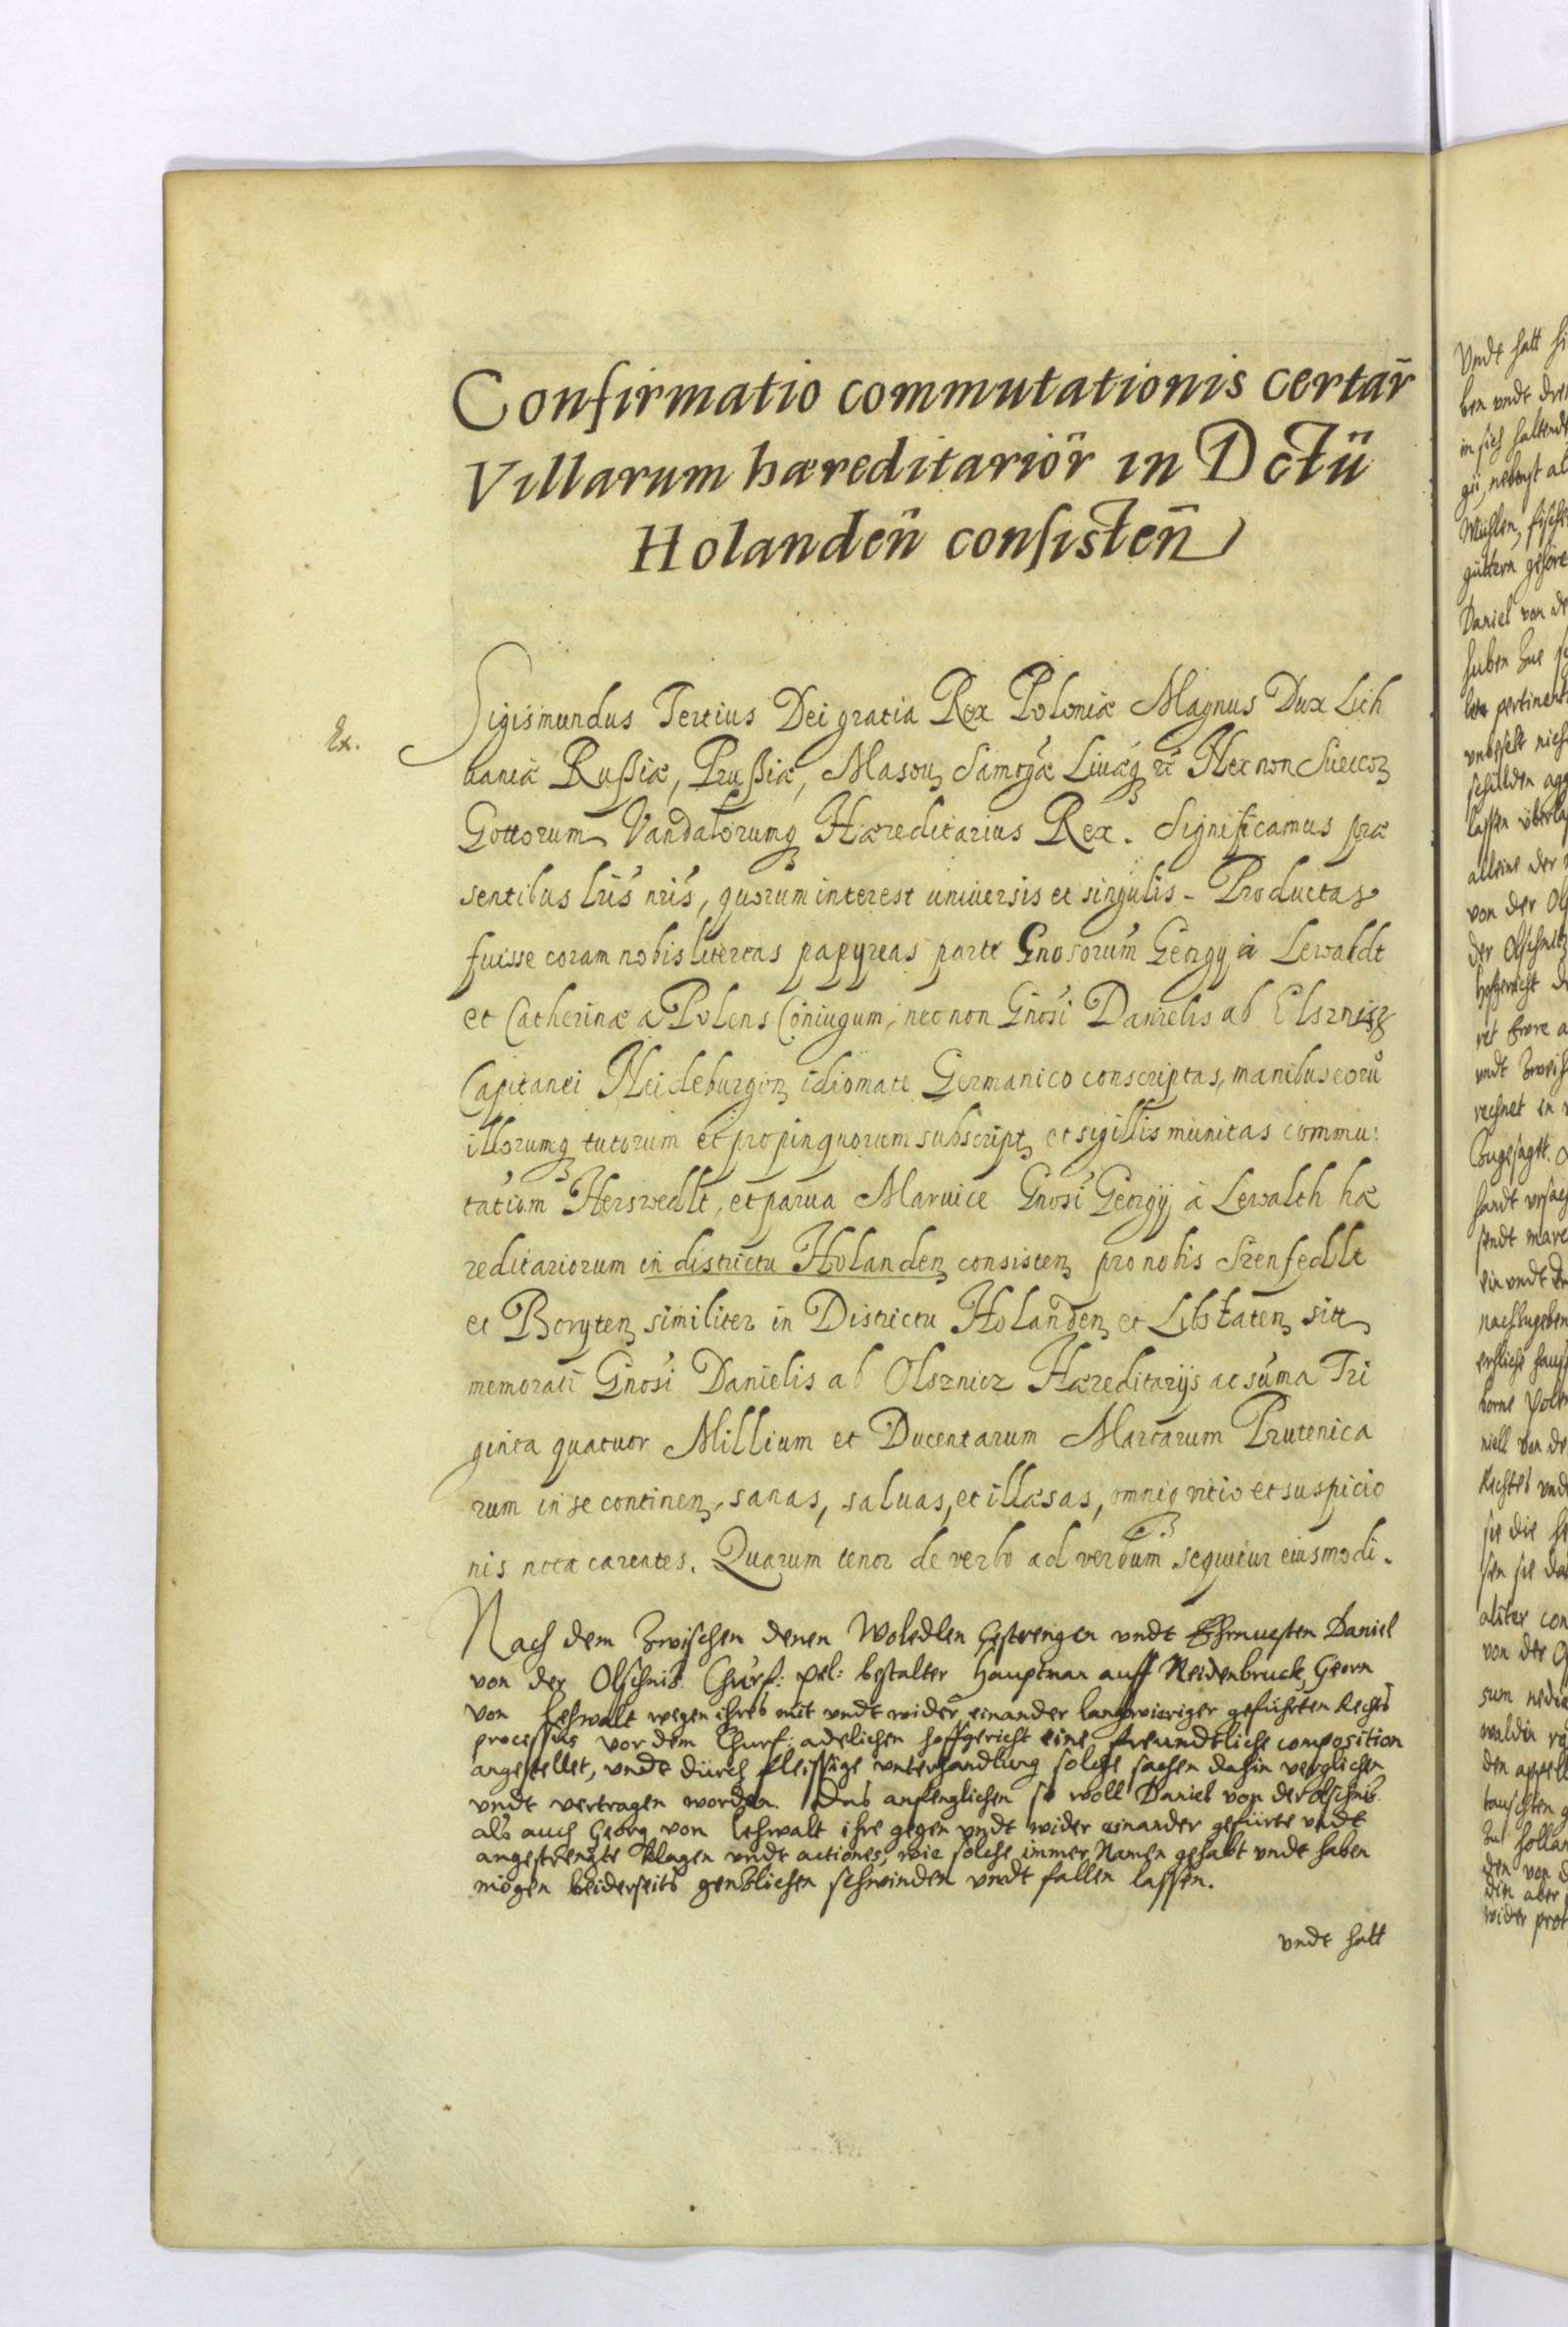 Confirmatio commutationis certar̄
Villarum hæreditariör in Dctü
Holandeñ consisteñ
Ex.
Sigismundus Tertius Dei gratia Rex Poloniæ Magnus Dux Lith
uaniæ Rußiæ, Prußiæ, Masouꝫ Samogᵃæ Liuæqꝫ ꝛc̄ Nec non Suecoꝛꝫ
Gottorum Vandalorumqꝫ Hæreditarius Rex. Significamus præ
sentibus lris nris, quorum interest uniuersis et singulis - Productas
fuisse coram nobis litteras papyreas parte Gnosorum Georgij à Lewaldt
et Catherinæ à Polens Coniugum, nec non Gnosi Danielis ab Elsznisz
Capitanei Neideburgenꝫ idiomate Germanico conscriptas, manibus eorū
illorumqꝫ tutorum et propinquorum subscriptꝫ et sigillis munitas commu:
tatiom Herswedlt, et parua Maruice Gnosi Georgij à Lewalth hæ
reditariorum in districtu Holandenꝫ consistenꝫ pro nobis Szenfedlt
et Borytenꝫ similiter in Districtu Holandenꝫ et Libstatenꝫ sitt
memorati Gnosi Danielis ab Olsznicz Hæreditarijs ac suma Tri
ginta quatuor Millium et Ducentarum Marcarum Prutenica
rum in se continenꝫ, sanas, saluas, et illæsas, omniq vitio et suspicio
nis nota carentes. Quarum tenor de verbo ad verbum sequitur eiusmodi.
Nach dem zwischen denen Woledlen Gestrengen vndt Ehrnuesten Daniel
von der Olschnitz Churf: pel: bestalter Hauptman auff Neidenbruck, Georn
von Lehwalt wegen ihres mit vndt wider einander langwieriger geführten Rechts
processus vor dem Churf: adelichen hoffgericht eine freundtliche composition
angestellet, vndt durch fleissige vnterhandlung solche sachen dahin verglichen
vndt vertragen worden. Das anfenglichen so woll Daniel von der Olschnitz
als auch Georg von Lehwalt ihre gegen vndt wider einander gefürte vndt
angestrengte klagen vndt actiones, wie solche immer Namen gehabt vndt haben
mögen beiderseits gentzlichen schwinden vndt fallen lassen.
vndt hatt